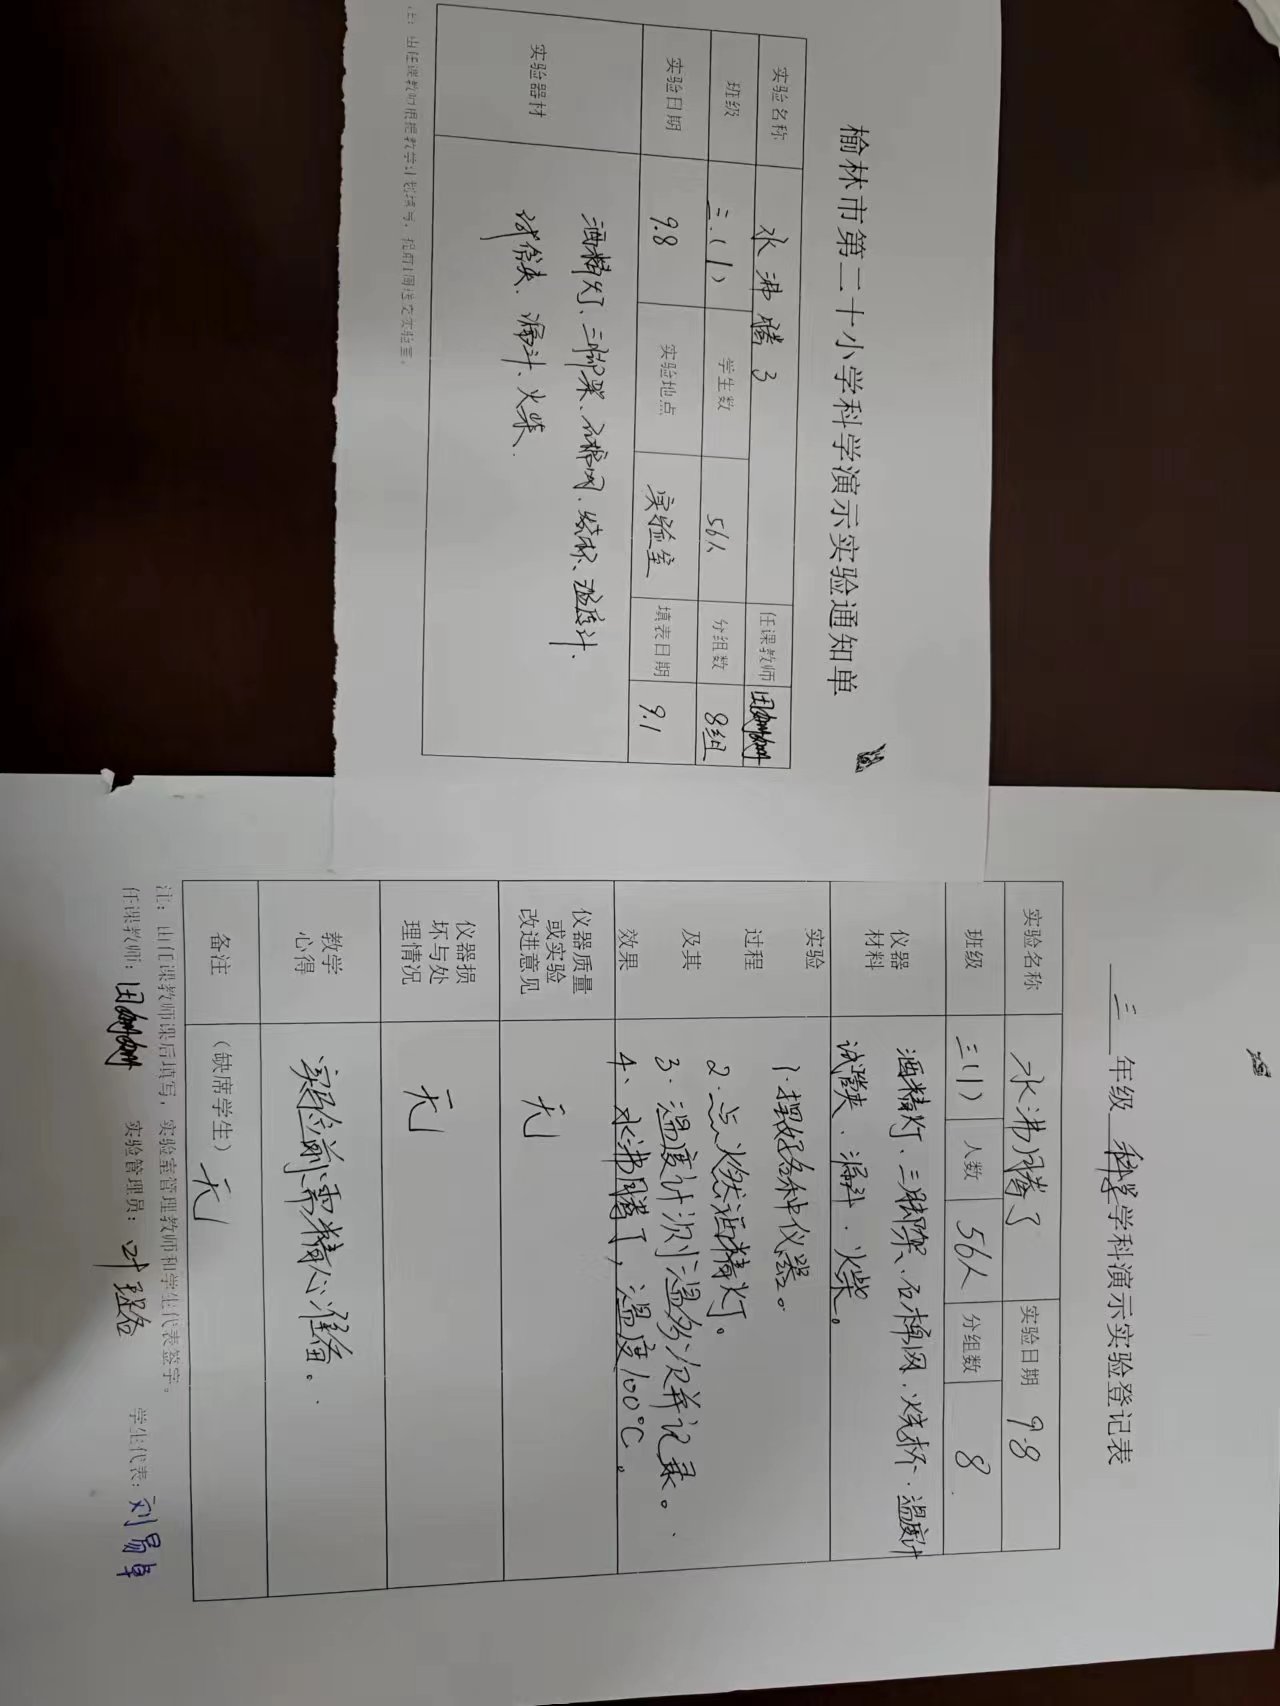 榆林市第二十小学科学演示实验通知单
实验名称 水沸腾了 任课教师
班级 三.(1) 学生数 56人 分组数 8组
实验日期 9.8 实验地点 实验室 填表日期 9.1
实验器材 酒精灯、三脚架、石棉网、烧杯、温度计、
试管夹、漏斗、火柴.
注：由任课教师根据教学计划填写，提前1周送交实验室。
三 年级 科学 学科演示实验登记表
实验名称 水沸腾了 实验日期 9.8
班级 三(1) 人数 56人 分组数 8
仪器材料 酒精灯、三脚架、石棉网、烧杯、温度计
试管夹、漏斗、火柴。
实验过程及其效果 1.摆好各种仪器。
2.点燃酒精灯。
3.温度计测温多次并记录。
4、水沸腾了，温度100℃。
仪器质量或实验改进意见 无
仪器损坏与处理情况 无
教学心得 实验前需精心准备.
备注 （缺席学生） 无
注：由任课教师课后填写，实验室管理教师和学生代表签字。
任课教师： 实验管理员： 学生代表：刘易卓